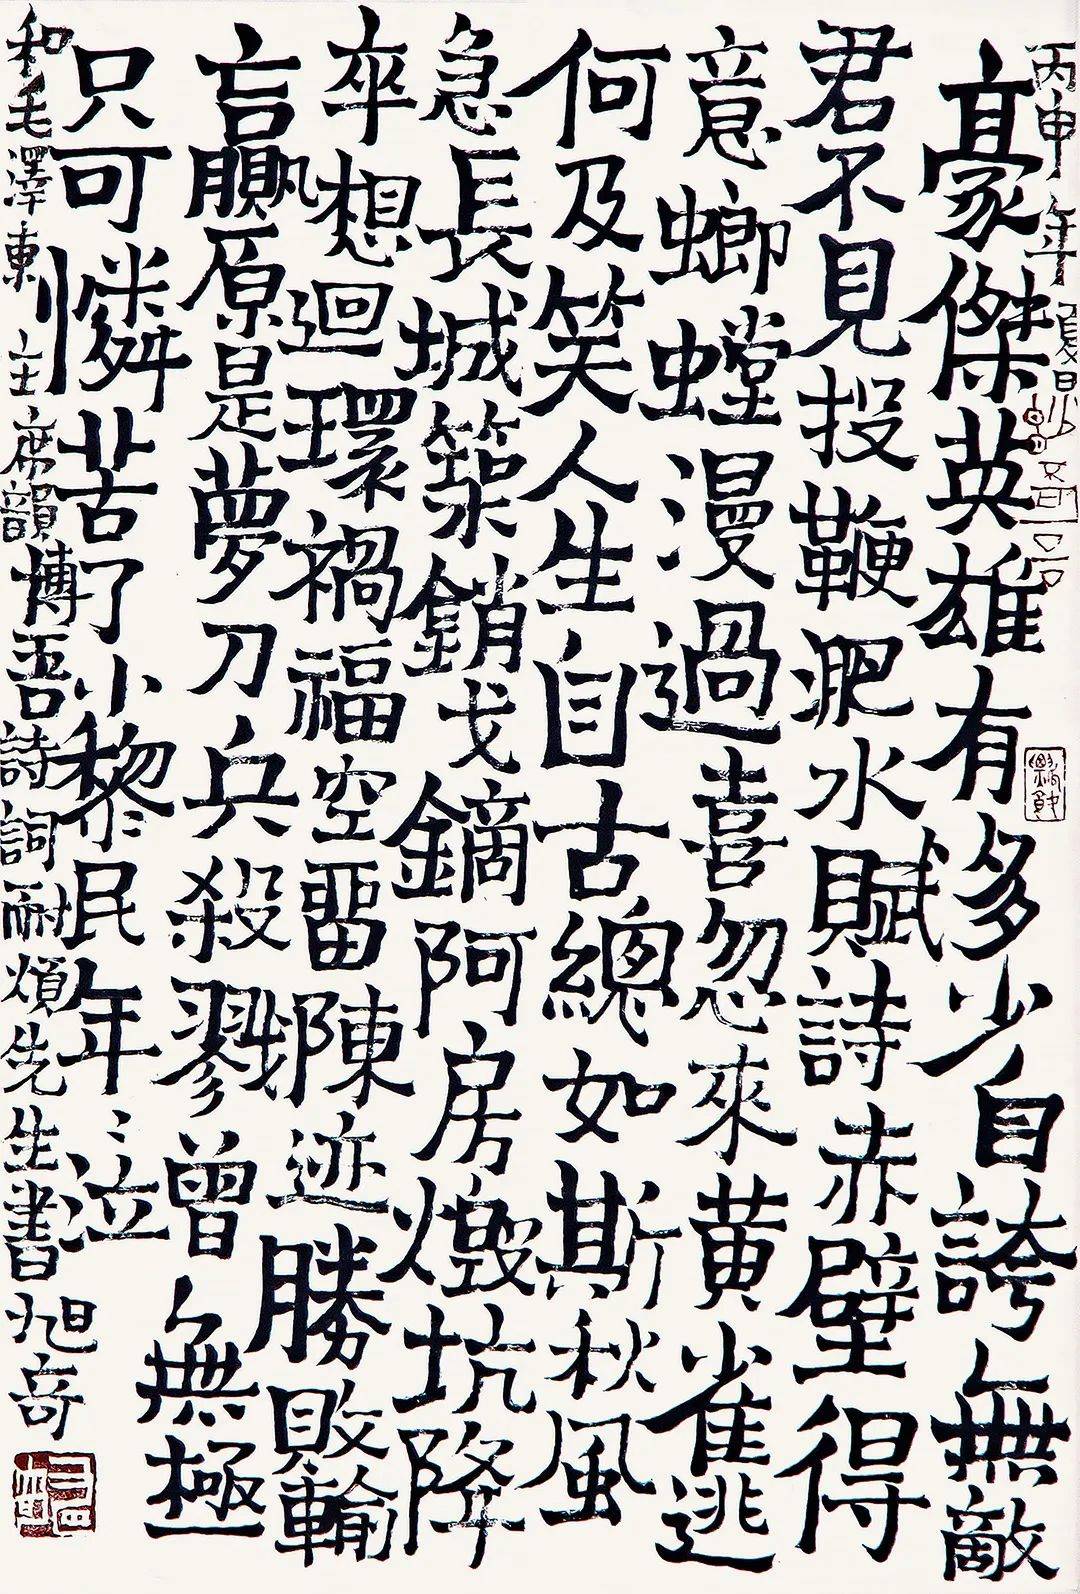 丙申年夏
豪傑英雄有多少自誇無敵
君不見投鞭淝水賦詩赤壁得
意螂螳漫過喜忽來黃雀逃
何及笑人生自古總如斯秋風
急長城築銷戈鏑阿房燬坑降
卒想迴環禍福空畱陳迹勝敗輸
贏原是夢刀兵殺戮曾無極
只可憐苦了小黎民年〻泣
和毛澤東主席韻博吾詩詞耐煩先生書旭奇